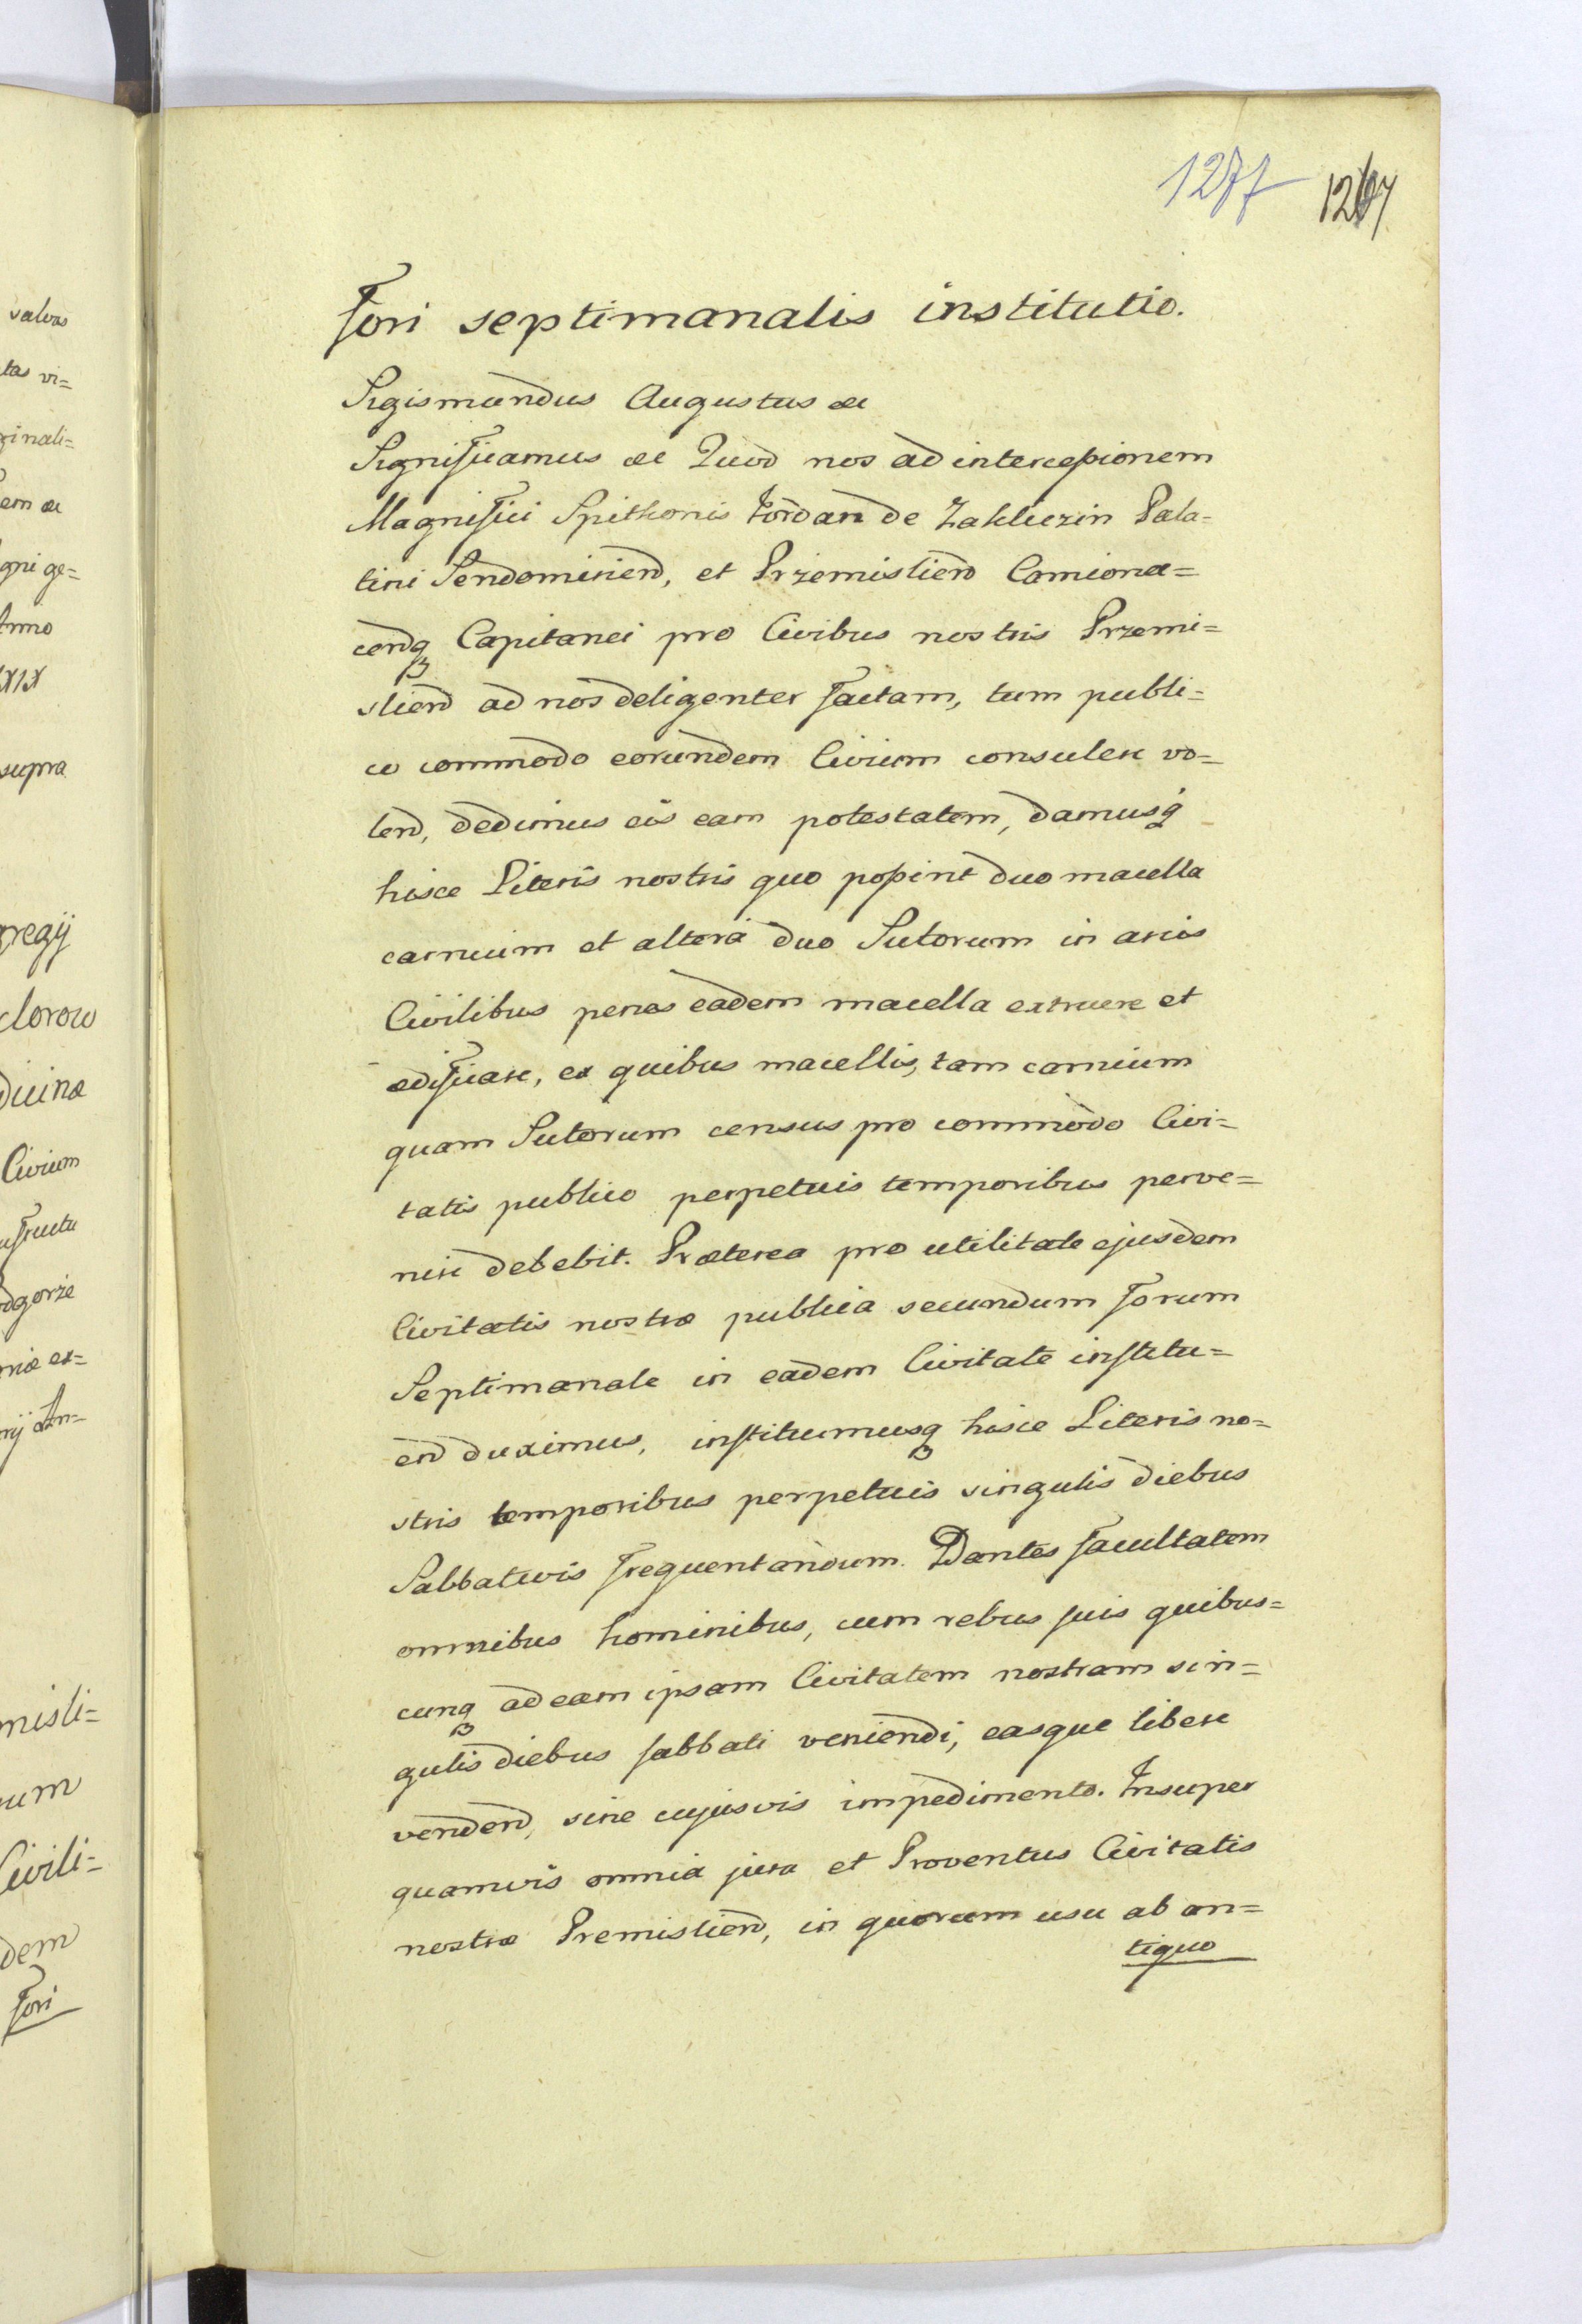 1277 1267
Fori septimanalis institutio.
Sigismundus Augustus &c
Significamus &c Quod nos ad intercessionem
Magnifici Spithonis Jordan de Zakliczin Pala=
tini Sendomirien, et Przemislien Camiona=
cenq Capitanei pro Civibus nostris Przemi=
slien ad nos deligenter factam, tum publi=
co commodo eorundem Civium consulere vo=
len, dedimus eis eam potestatem, damusq
hisce Literis nostris quo possint duo macella
carnium et altera duo Sutorum in areis
Civilibus penes eadem macella extruere et
ædificare, ex quibus macellis, tam carnium
quam Sutorum census pro commodo Civi=
tatis publico perpetuis temporibus perve=
nire debebit. Præterea pro utilitate ejusdem
Civitatis nostræ publica secundum Forum
Septimanale in eadem Civitate institu=
en duximus, instituimusq hisce Literis no=
stris temporibus perpetuis singulis diebus
Sabbativis frequentandum. Dantes facultatem
omnibus hominibus, cum rebus suis quibus=
cunq ad eam ipsam Civitatem nostram sin=
gulis diebus sabbati veniendi, easque libere
venden, sine cujusvis impedimento. Insuper
quamvis omnia jura et Proventus Civitatis
nostræ Premislien, in quorum usu ab an=
tiquo
salvas
tas vi=
ginali=
em &c
gni ge=
Anno
LXIX
supra
gregij
clorow
Civium
odgorze
niæ ex=
misli=
Civili=
dem
Fori